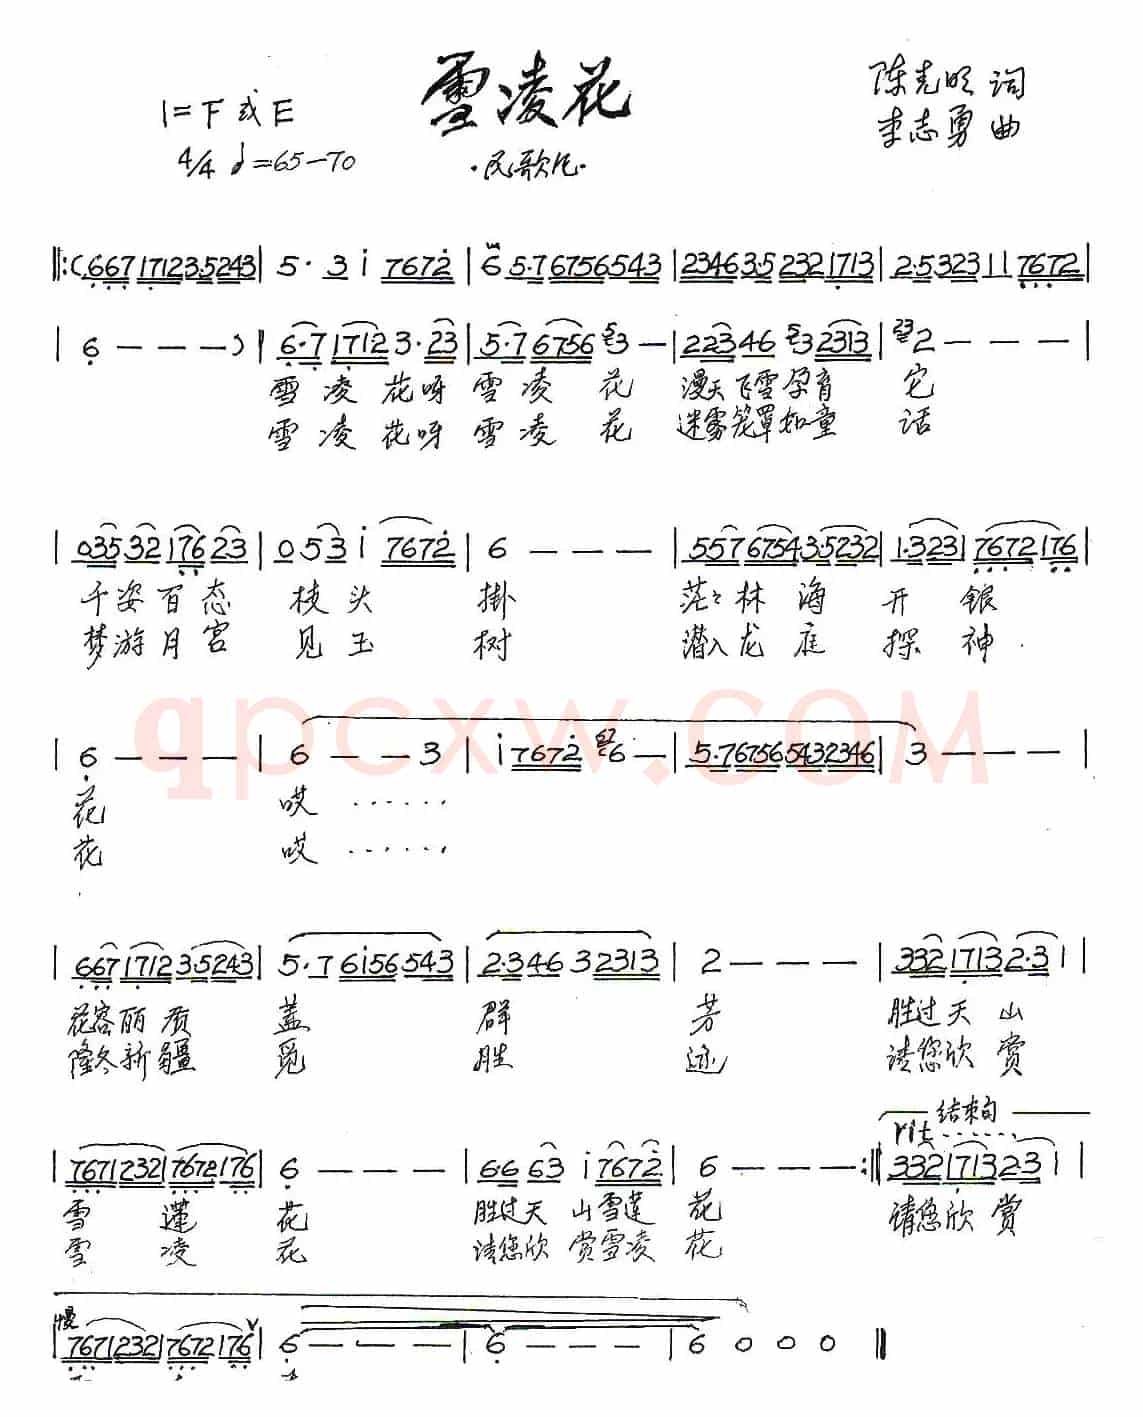 雪凌花
1=F 或 E
4/4 ♩=65-70
·民歌风·
陈光明 词
李志勇 曲
‖:(667 1712 3·5 243 | 5· 3 i 7672 | 6 5·7 6756 543 | 2346 3·5 232 1713 | 2·5 323 1 1 7672 |
| 6 - - - ) ‖ 6·7 1712 3·23 | 5·7 6756 3 - | 223 46 3 2313 | 2 - - - |
雪凌花呀 雪凌花 漫天飞雪孕育它
雪凌花呀 雪凌花 迷雾笼罩如童话
| 035 32 176 23 | 0 5 3 i 7672 | 6 - - - | 557 6754 3·5 232 | 1·323 1 7672 176 |
千姿百态 枝头 掛 茫々林海 开银
梦游月宫 见玉 树 潜入龙庭 探神
| 6 - - - | 6 - - 3 | i 7672 6 - | 5·7 6756 5432 346 | 3 - - - |
花 哎 ······
花 哎 ······
| 667 1712 3·5 243 | 5·7 6i56 543 | 2·3 46 3 2313 | 2 - - - | 332 1713 2·3 1 |
花容丽质 盖 群 芳 胜过天山
隆冬新疆 觅 胜 迹 请您欣赏
结束句
rit······
| 7671 232 7672 176 | 6 - - - | 6·6 63 i 7672 | 6 - - - :‖ 332 1713 2·3 1 |
雪莲 花 胜过天山雪莲 花 请您欣赏
雪凌 花 请您欣赏雪凌 花
慢
| 7671 232 7672 176 | 6 - - - | 6 - - - | 6 0 0 0 ‖
qpcxw.COM